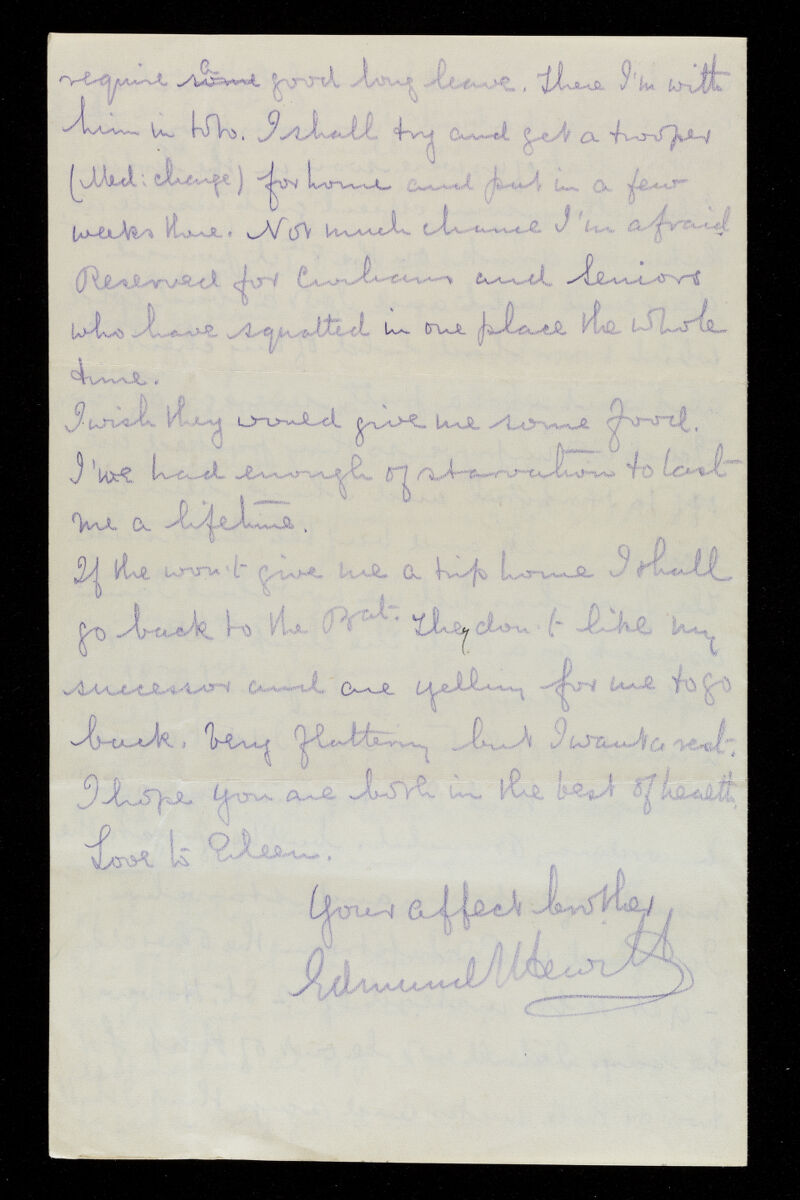 require a some good long leave. There I'm with
him in toto. I shall try and get a trooper
(Med: charge) for home and put in a few
weeks there. Not much chance I'm afraid
Reserved for Civilians and Seniors
who have squatted in one place the whole
time.
I wish they would give me some food.
I've had enough of starvation to last
me a lifetime.
If the won't give me a trip home I shall
go back to the Bat. They don't like my
successor and are yelling for me to go
back. Very flattering but I want a rest.
I hope you are both in the best of health
Love to Eileen.
Your affect brother
Edmund Hewitt